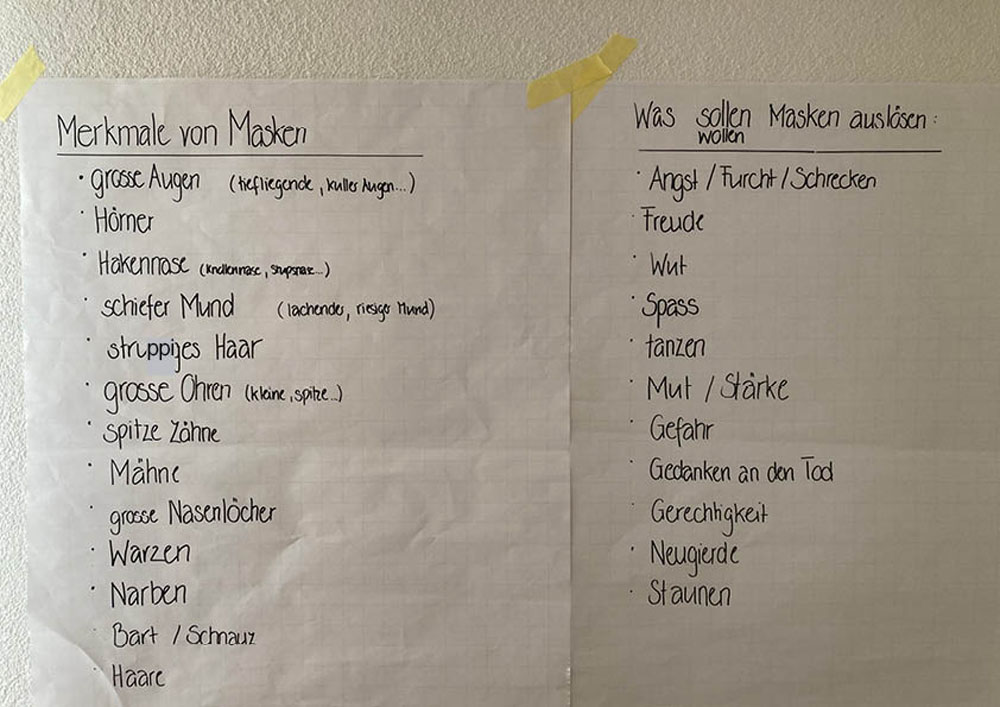 Merkmale von Masken
· grosse Augen (tiefliegende, kuller Augen...)
· Hörner
· Hakennase (Knollennase, Stupsnase...)
· schiefer Mund (lachender, riesiger Mund)
· struppiges Haar
· grosse Ohren (kleine, spitze...)
· spitze Zähne
· Mähne
· grosse Nasenlöcher
· Warzen
· Narben
· Bart / Schnauz
· Haare
Was sollen Masken auslösen:
wollen
· Angst / Furcht / Schrecken
· Freude
· Wut
· Spass
· tanzen
· Mut / Stärke
· Gefahr
· Gedanken an den Tod
· Gerechtigkeit
· Neugierde
· Staunen